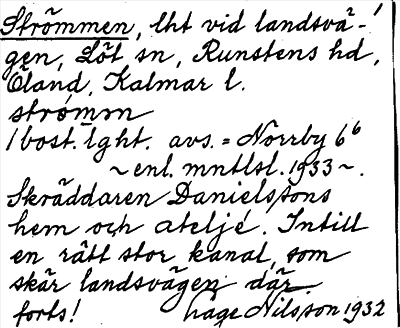 Strömmen, lht vid landsvä-
gen, Löt sn, Runstens hd,
Öland, Kalmar l.
strömm
1 bost. lght. avs. = Norrby 6⁶
~ enl. mntlsl. 1933 ~.
Skräddaren Danielssons
hem och ateljé. Intill
en rätt stor kanal, som
skär landsvägen där.
forts! Åge Nilsson 1932